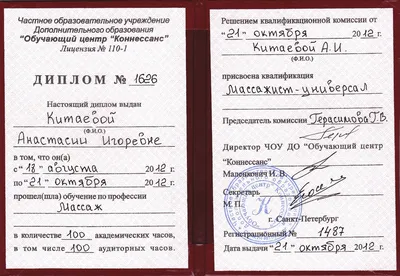 Частное образовательное учреждение
Дополнительного образования
"Обучающий центр "Коннессанс"
Лицензия № 110-1
ДИПЛОМ № 1626
Настоящий диплом выдан
Китаевой
(Ф.И.О.)
Анастасии Игоревне
в том, что он(а)
с "18" августа 2012 г.
по "21" октября 2012 г.
прошел(шла) обучение по профессии
Массаж
в количестве 100 академических часов,
в том числе 100 аудиторных часов.
Решением квалификационной комиссии от
"21" октября 2012 г.
Китаевой А.И.
(Ф.И.О.)
присвоена квалификация
Массажист-универсал
Председатель комиссии Герасимова Г.В.
Директор ЧОУ ДО "Обучающий центр
"Коннессанс"
Маленкович И. В.
Секретарь
М. П.
г. Санкт-Петербург
Регистрационный № 1487
Дата выдачи "21" октября 2012 г.